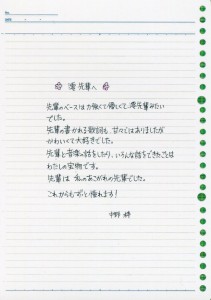 澪先輩へ
先輩のベースは力強くて優しくて、澪先輩みたい
でした。
先輩の書かれる歌詞も、甘々ではありましたが
かわいくて大好きでした。
先輩と音楽の話をしたり、いろんな話をできたことは
わたしの宝物です。
先輩は 私のあこがれの先輩でした。
これからもずっと憧れます!
中野 梓